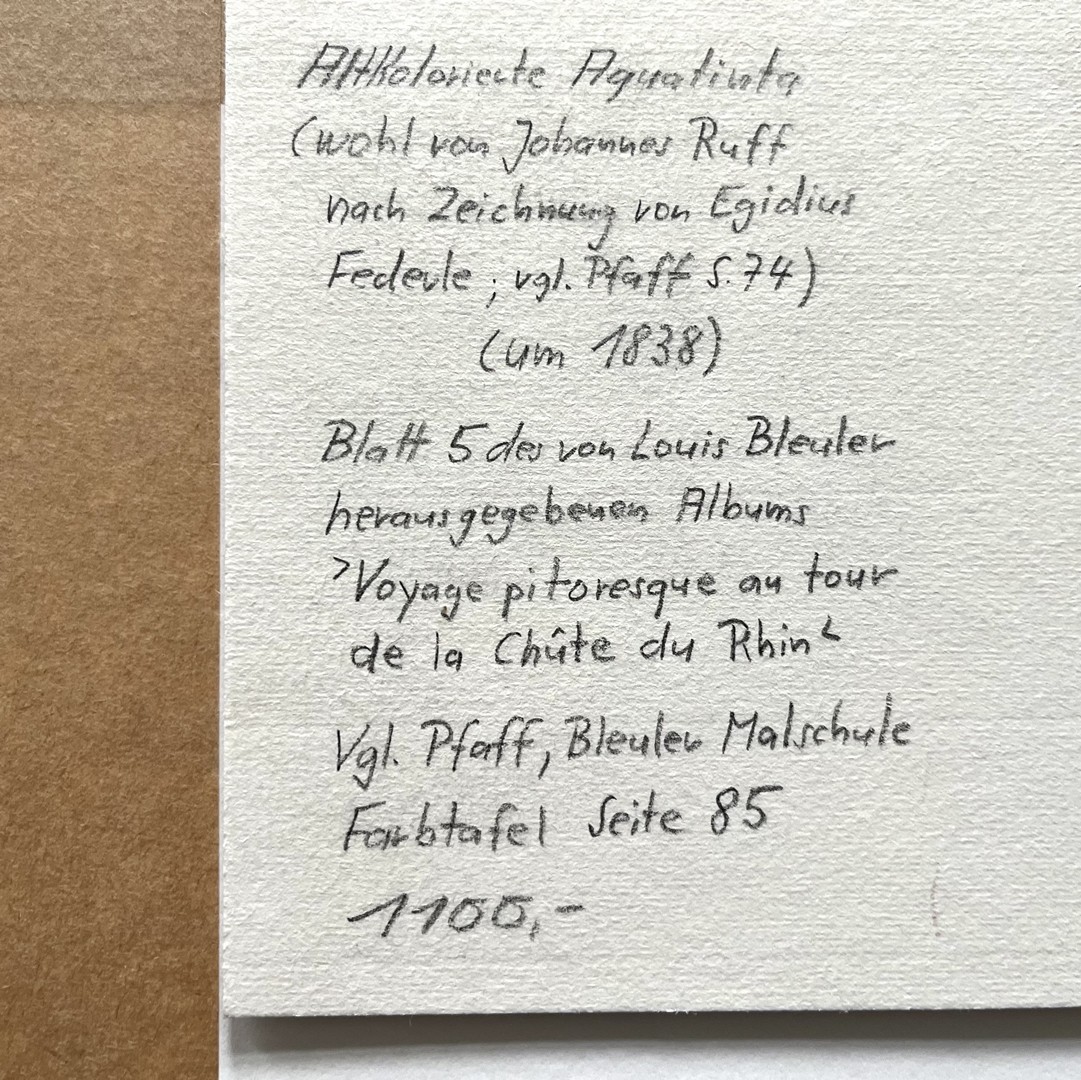 Altkolorierte Aquatinta
(wohl von Johannes Ruff
nach Zeichnung von Egidius
Federle ; vgl. Pfaff S. 74)
(um 1838)
Blatt 5 des von Louis Bleuler
herausgegebenen Albums
>Voyage pitoresque au tour
de la Chûte du Rhin<
Vgl. Pfaff, Bleuler Malschule
Farbtafel Seite 85
1100,-